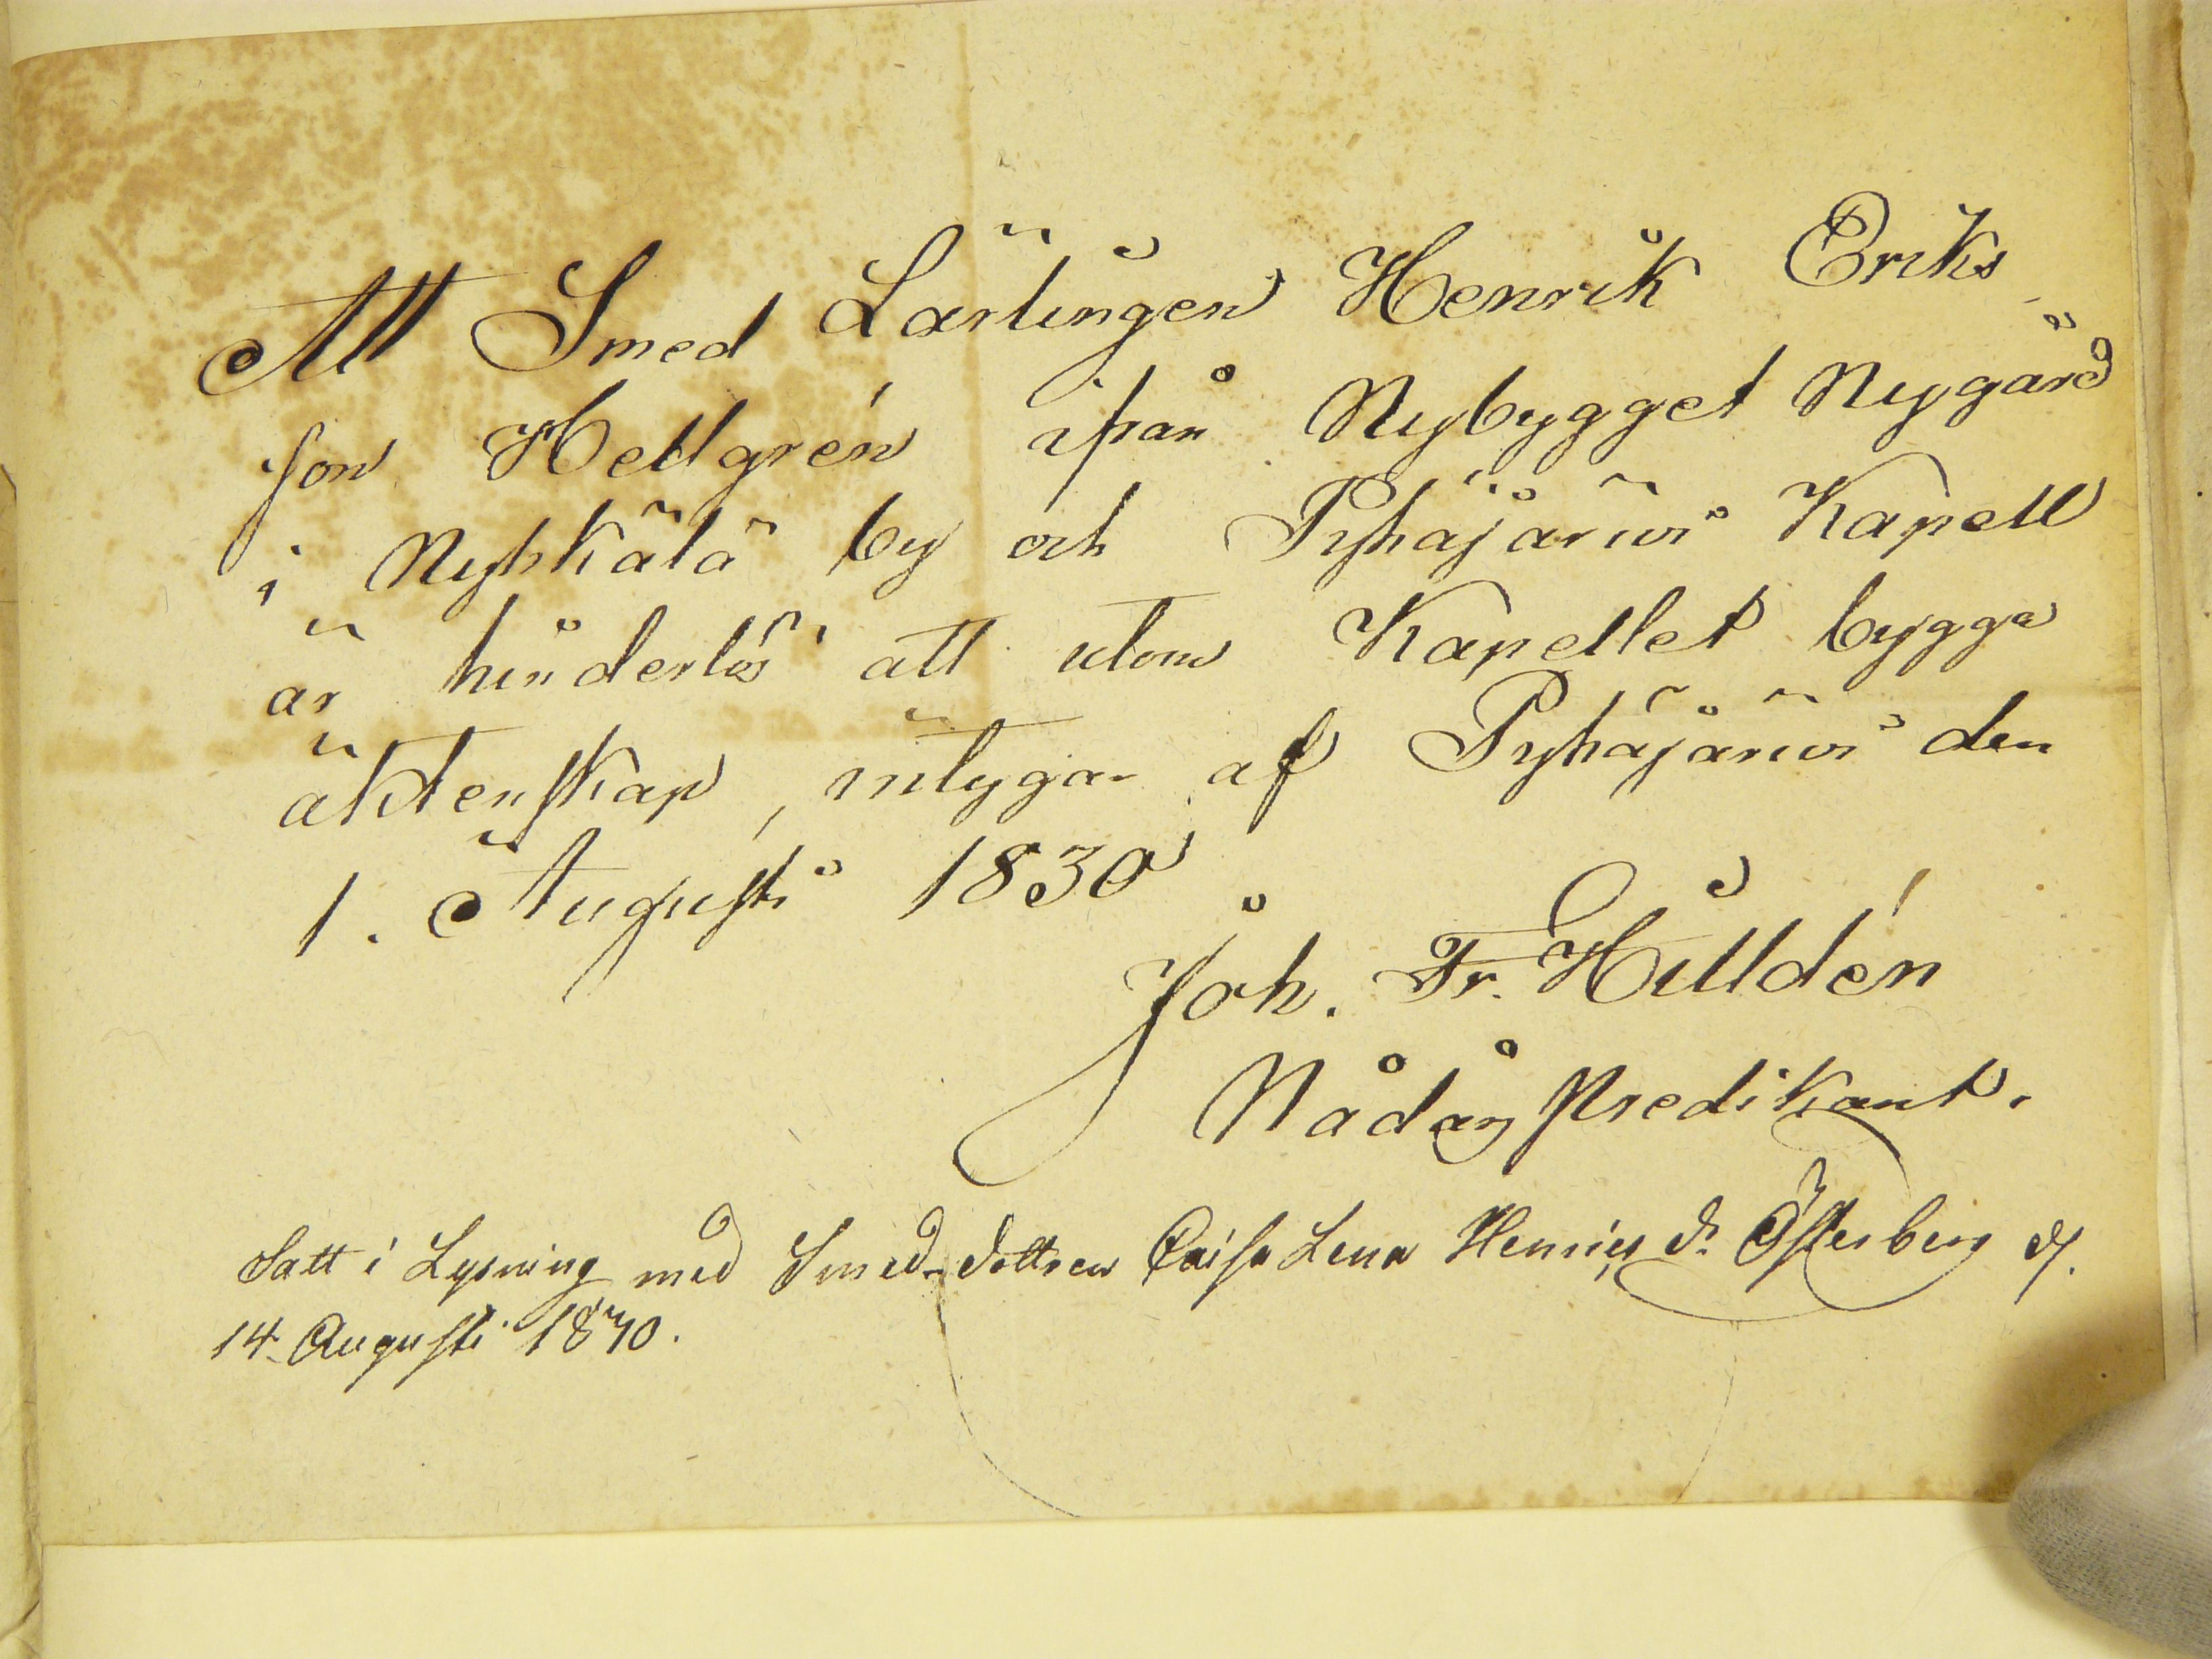 Att Smed Lärlingen Henrik Eriks
son Hellgrén ifrån Nybygget Nygård
i Nyhkälä by och Pyhäjärwi Kapell
är hinderlös att utom Kapellet bygga
äktenskap, intygar af Pyhäjärwi den
1. Augusti 1830
Joh. Fr. Hilldén
Nådårs Predikant.
Satt i Lysning med Smed-dottren Caisa Lena Henrics dr Österberg d.
14 Augusti 1830.